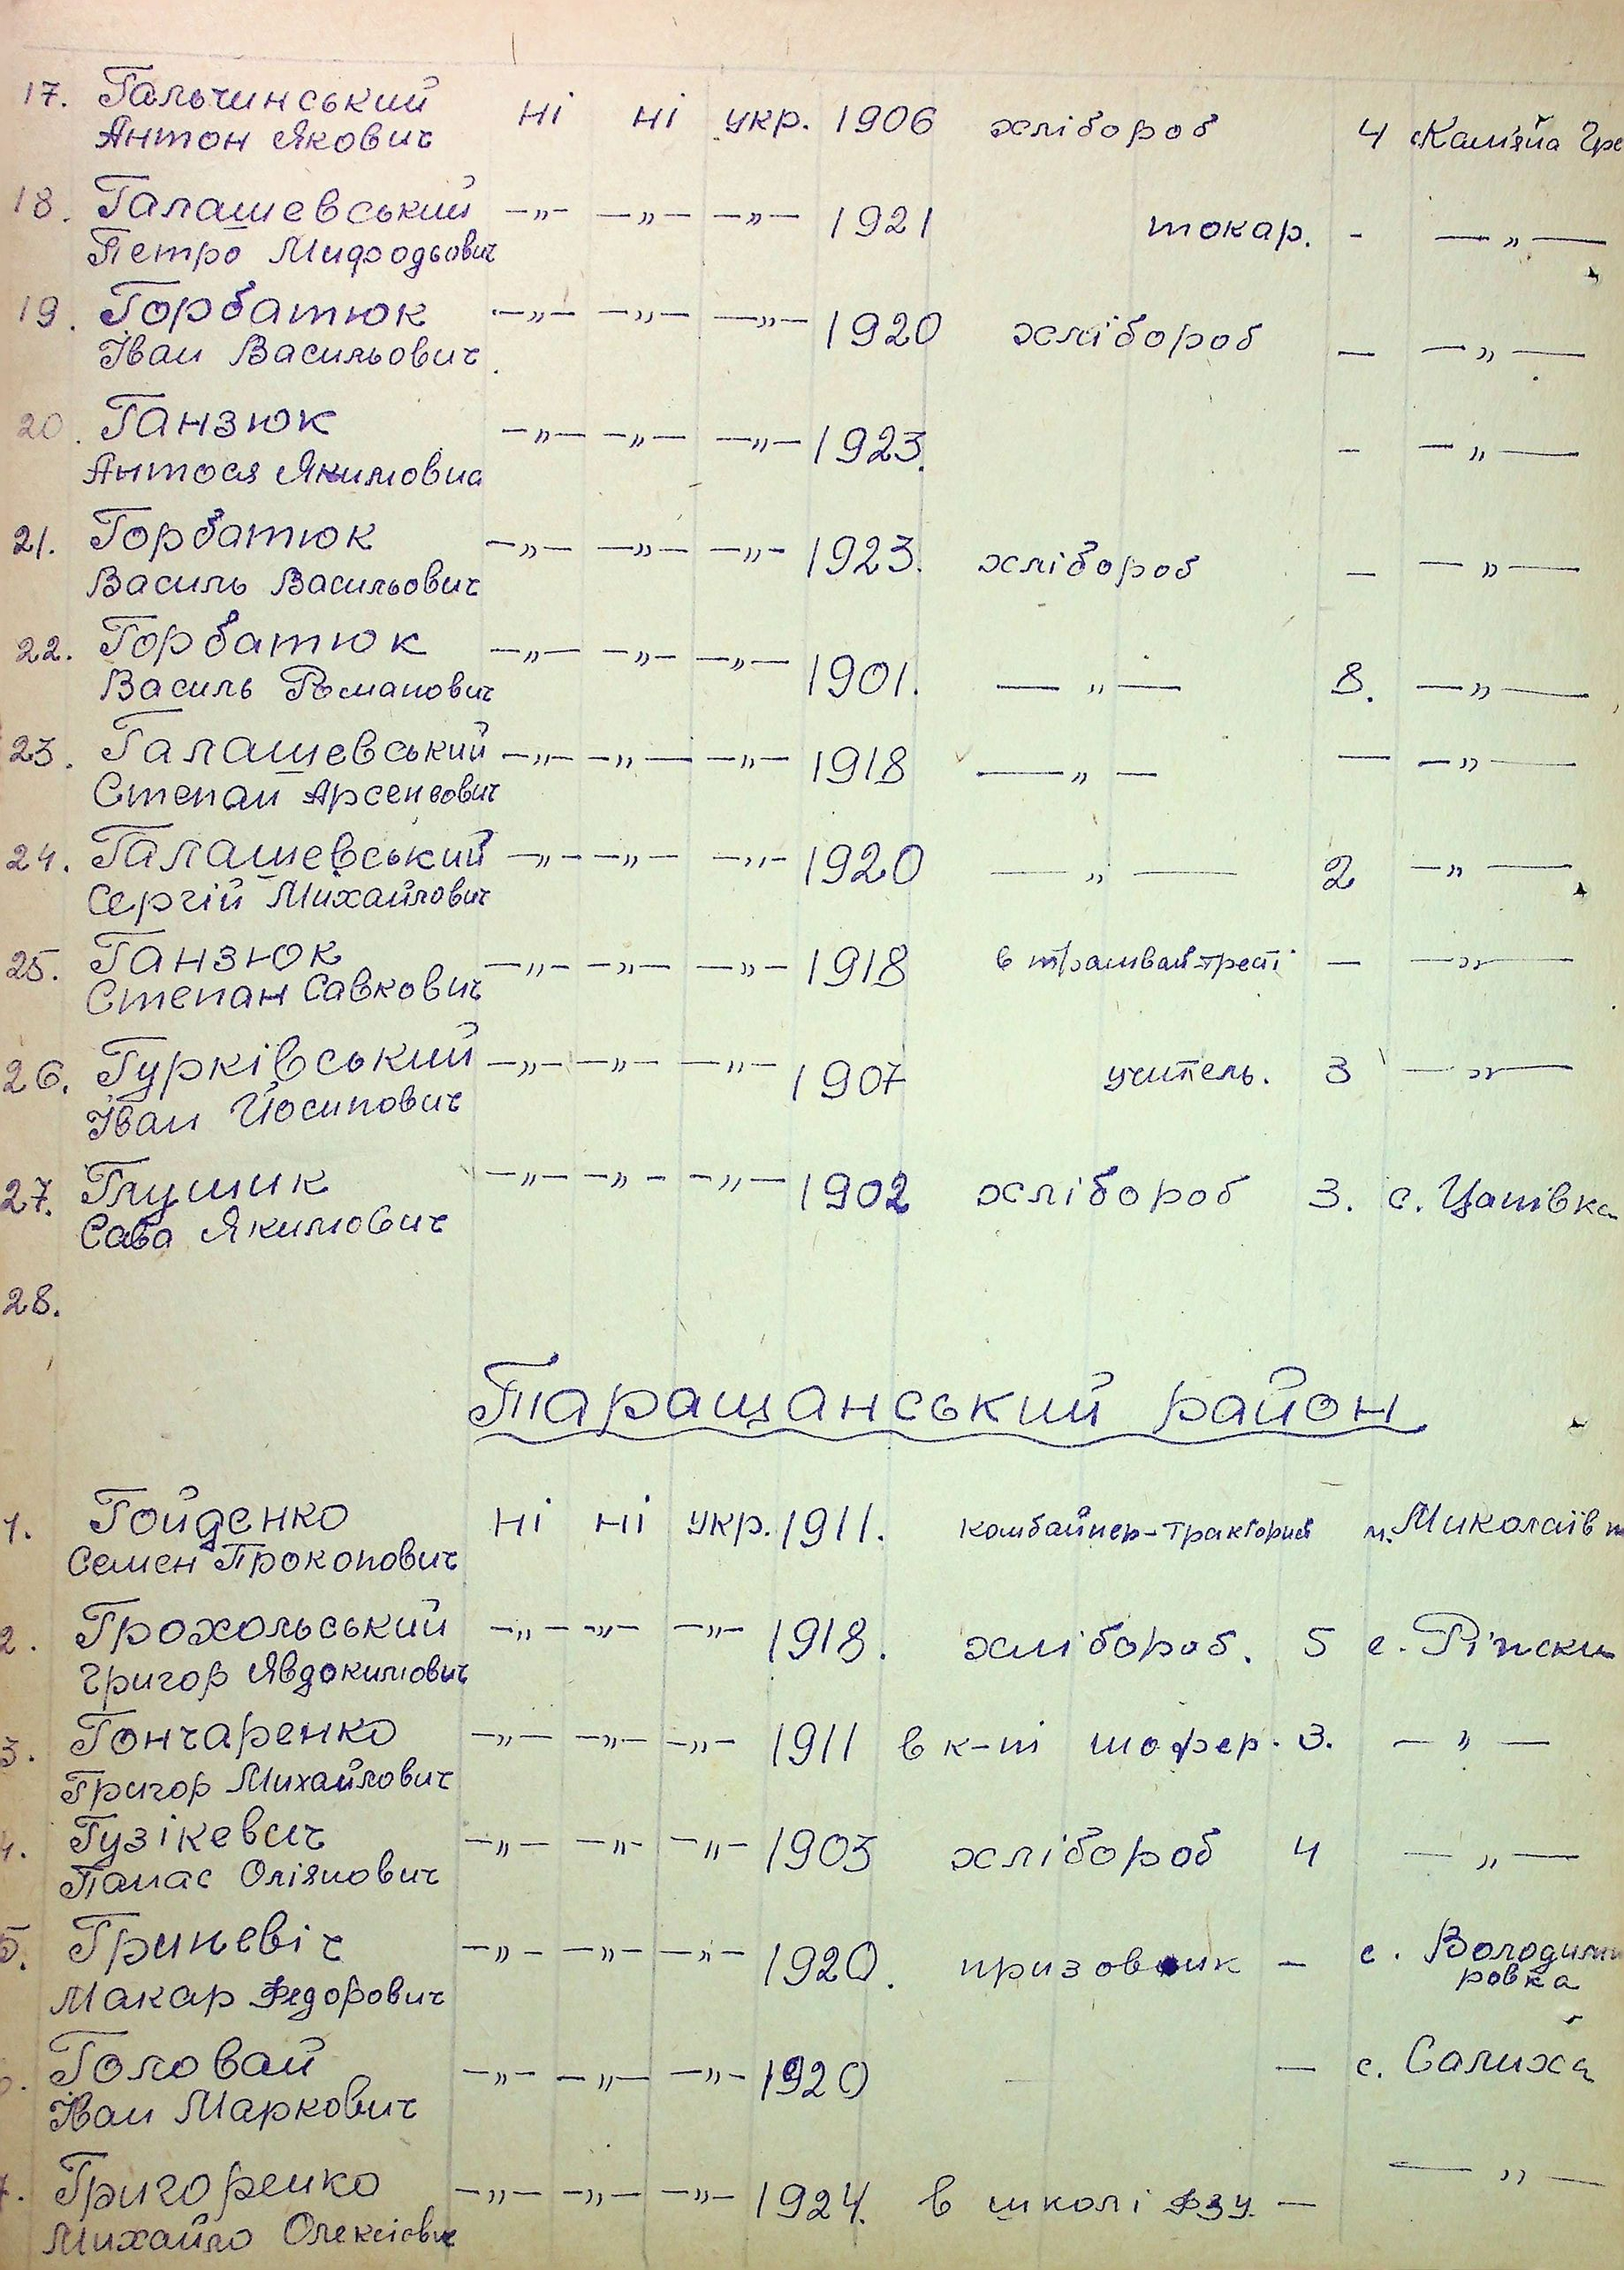 17. Гальчинський ні ні укр. 1906 хлібороб 4 с Кам'яна Гре
Антон Якович
18. Галашевський —„— —„— —„— 1921 токар. - —„—
Петро Мифодьович
19. Горбатюк —„— —„— —„— 1920 хлібороб — —„—
Іван Васильович
20. Ганзюк —„— —„— —„— 1923. - —„—
Антося Якимовна
21. Горбатюк —„— —„— —„— 1923. хлібороб — —„—
Василь Васильович
22. Горбатюк —„— —„— —„— 1901. —„— 8. —„—
Василь Романович
23. Галашевський —„— —„— —„— 1918 —„— — —„—
Степан Арсенович
24. Галашевський —„— —„— —„— 1920 —„— 2 —„—
Сергій Михайлович
25. Ганзюк —„— —„— —„— 1918 в трамвай-тресті — —„—
Степан Савкович
26. Гурківський —„— —„— —„— 1907 учитель. 3 —„—
Іван Йосипович
27. Глушик —„— —„— —„— 1902 хлібороб 3. с. Цапівка
Сава Якимович
28.
Таращанський район
1. Гойденко ні ні укр. 1911. комбайнер-тракторист м. Миколаїв
Семен Прокопович
2. Грохольський —„— —„— —„— 1918. хлібороб. 5 с. Ріпски
Григор Явдокимович
3. Гончаренко —„— —„— —„— 1911 в к-ті шофер. 3. —„—
Григор Михайлович
4. Гузікевич —„— —„— —„— 1903 хлібороб 4 —„—
Панас Оліянович
5. Гриневіч —„— —„— —„— 1920. призовник — с. Володими
Макар Федорович ровка
Головай —„— —„— —„— 1920 — с. Салиха
Іван Маркович
7. Григоренко —„— —„— —„— 1924. в школі ФЗУ. — —„—
Михайло Олексієвич